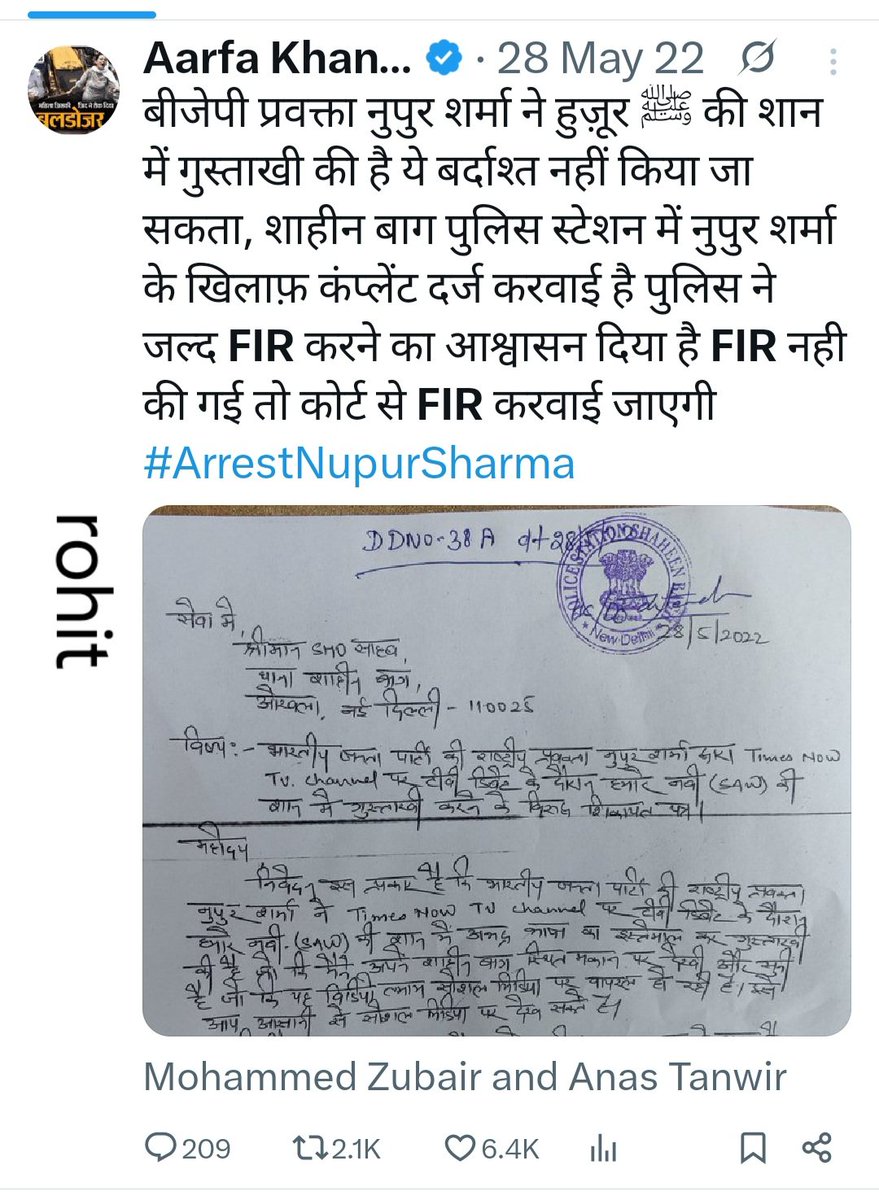 Aarfa Khan... · 28 May 22
बीजेपी प्रवक्ता नुपुर शर्मा ने हुज़ूर ﷺ की शान
में गुस्ताखी की है ये बर्दाश्त नहीं किया जा
सकता, शाहीन बाग पुलिस स्टेशन में नुपुर शर्मा
के खिलाफ़ कंप्लेंट दर्ज करवाई है पुलिस ने
जल्द FIR करने का आश्वासन दिया है FIR नही
की गई तो कोर्ट से FIR करवाई जाएगी
#ArrestNupurSharma
rohit
बुलडोजर
DDNO-38A
POLICE STATION SHAHEEN
New Delhi
28/5/2022
सेवा मे,
श्रीमान SHO साहब,
थाना शाहीन बाग,
ओखला, नई दिल्ली - 110025
विषय:- भारतीय जनता पार्टी की राष्ट्रीय प्रवक्ता नुपुर शर्मा द्वारा Times Now
Tv. channel पर टीवी डिबेट के दौरान हमारे नबी (SAW) की
शान मे गुस्ताखी करने के विरुद्ध शिकायत पत्र।
महोदय
निवेदन इस प्रकार है कि भारतीय जनता पार्टी की राष्ट्रीय प्रवक्ता
नुपुर शर्मा ने Times Now TV channel पर टीवी डिबेट के दौरान
हमारे नबी (SAW) की शान मे अभद्र भाषा का इस्तेमाल कर गुस्ताखी
की है जो कि मैने अपने शाहीन बाग स्थित मकान पर देखी और सुनी
है जो कि यह विडियो तमाम सोशल मिडिया पर वायरल हो रही है। इसे
आप आसानी से सोशल मिडिया पर देख सकते है।
Mohammed Zubair and Anas Tanwir
209 2.1K 6.4K